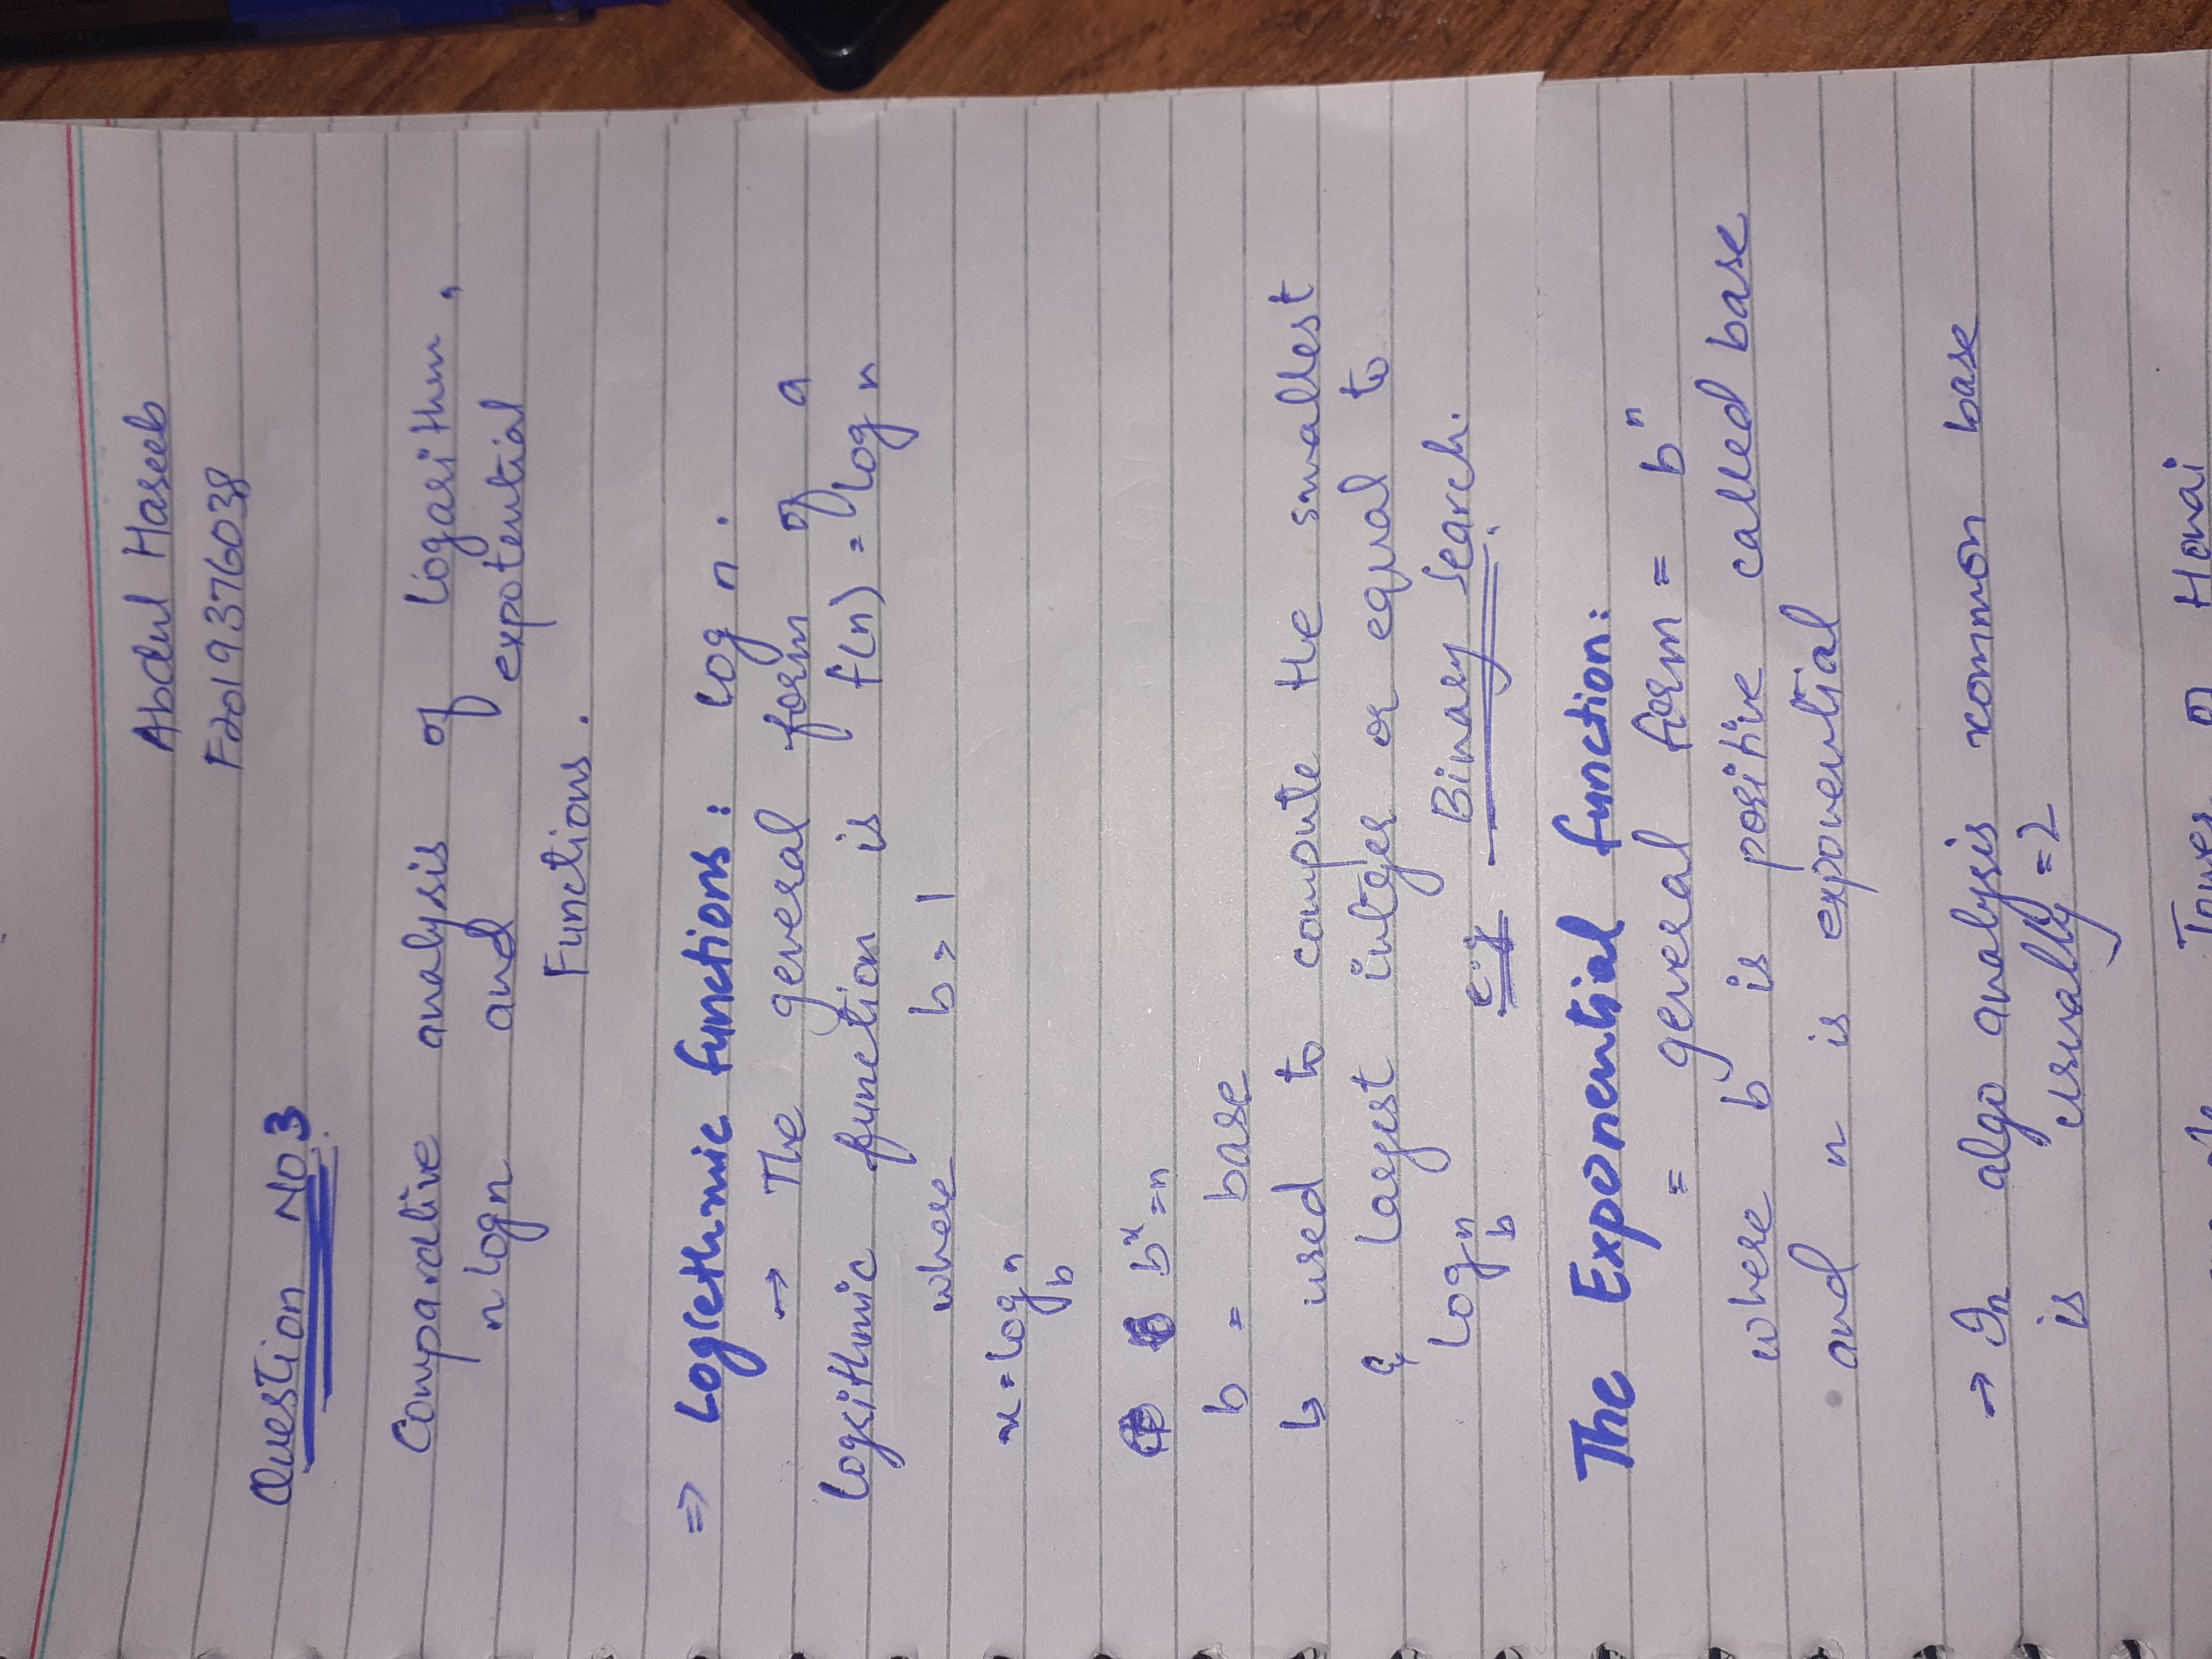 Abdul Haseeb
F2019376038
Question No3
Comparative analysis of logarithm,
n logn and expotential
Functions.
=> Logrethmic functions: log n.
→ The general form of a
logrithmic function is f(n) = log n
where b > 1
x = log_b n
b^x = n
b = base
↳ used to compute the smallest
& largest intger or equal to
log_b n
e.g - Binary Search.
The Exponential function:
= general form = b^n
where b is positive called base
and n is exponential
→ In algo analysis common base
is usually = 2
Honai